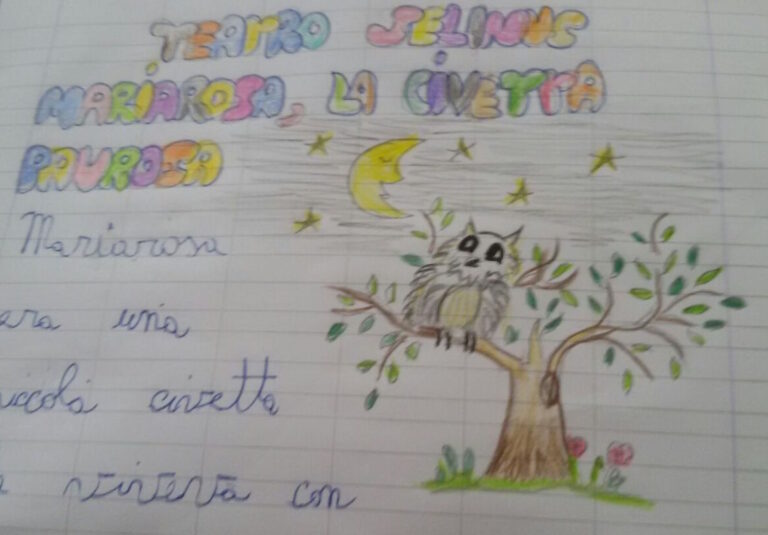 TEATRO SELINUS
MARIAROSA, LA CIVETTA
PAUROSA
Mariarosa
era una
iccola civetta
viveva con